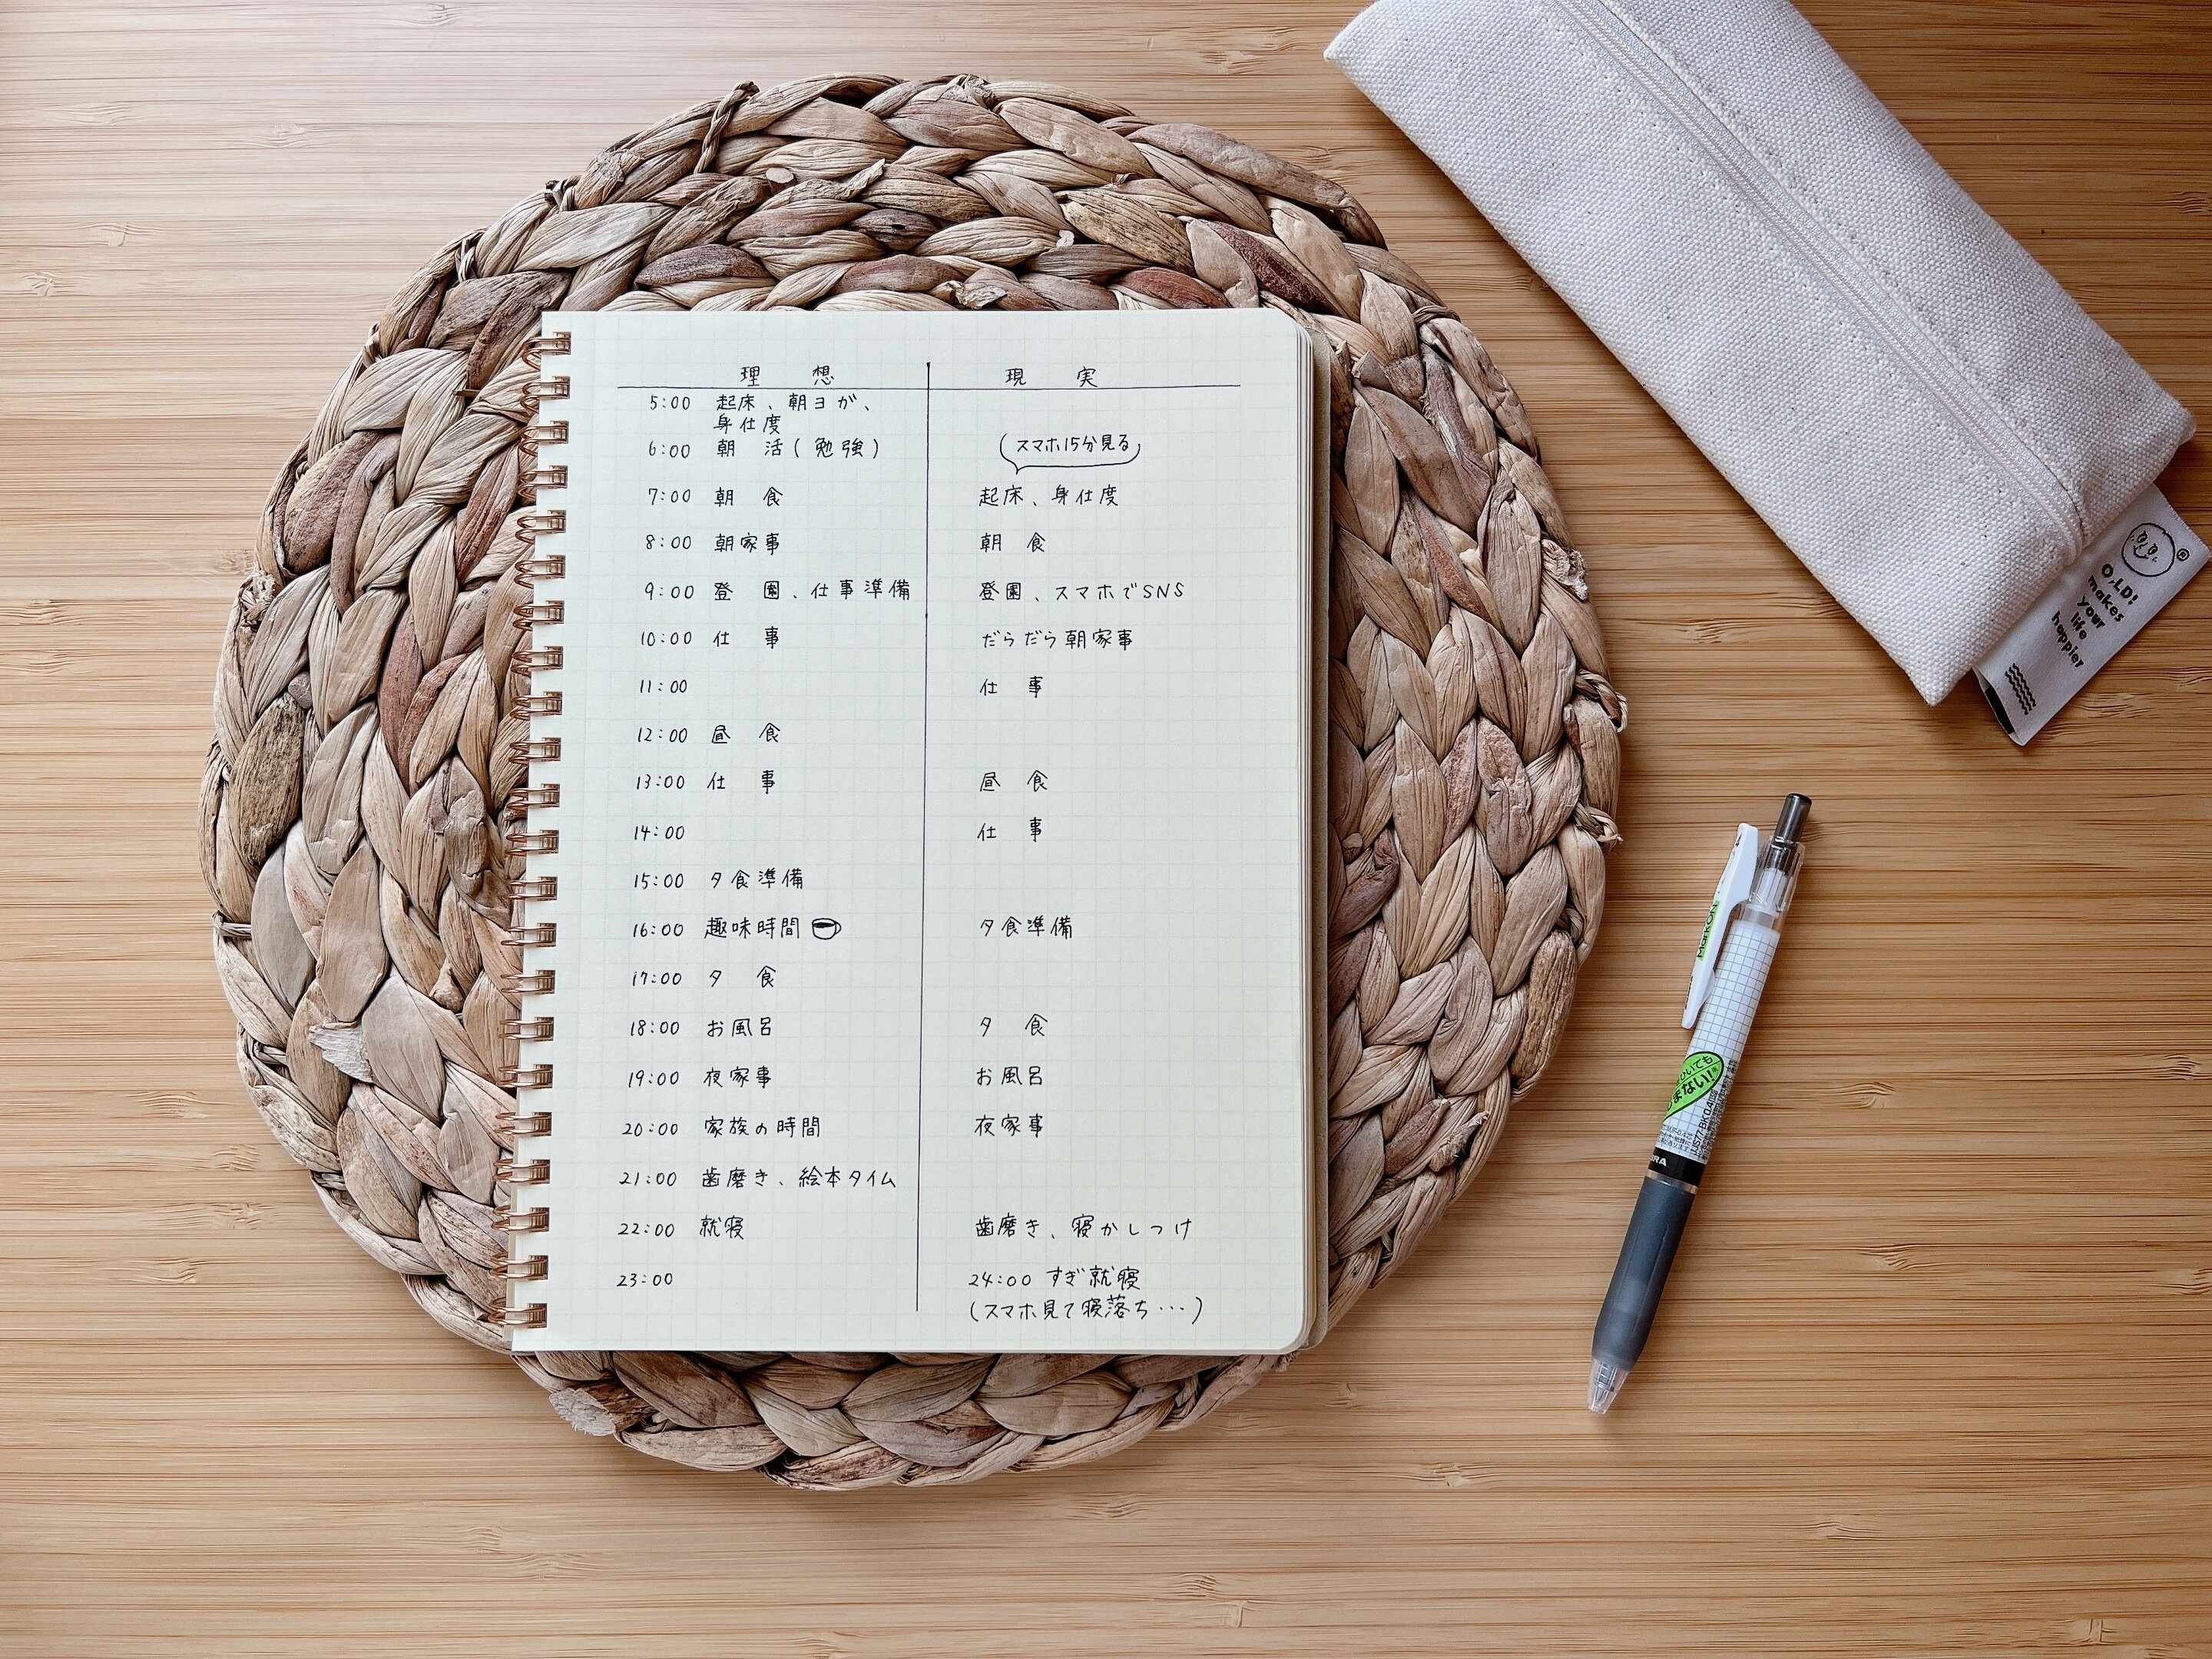 理想 現実
5:00 起床、朝ヨガ、
身仕度
6:00 朝活(勉強)
(スマホ15分見る)
7:00 朝食 起床、身仕度
8:00 朝家事 朝食
9:00 登園、仕事準備 登園、スマホでSNS
10:00 仕事 だらだら朝家事
11:00 仕事
12:00 昼食
13:00 仕事 昼食
14:00 仕事
15:00 夕食準備
16:00 趣味時間 夕食準備
17:00 夕食
18:00 お風呂 夕食
19:00 夜家事 お風呂
20:00 家族の時間 夜家事
21:00 歯磨き、絵本タイム
22:00 就寝 歯磨き、寝かしつけ
23:00 24:00 すぎ就寝
(スマホ見て寝落ち…)
O,LD!
makes
your
life
happier
MarkON